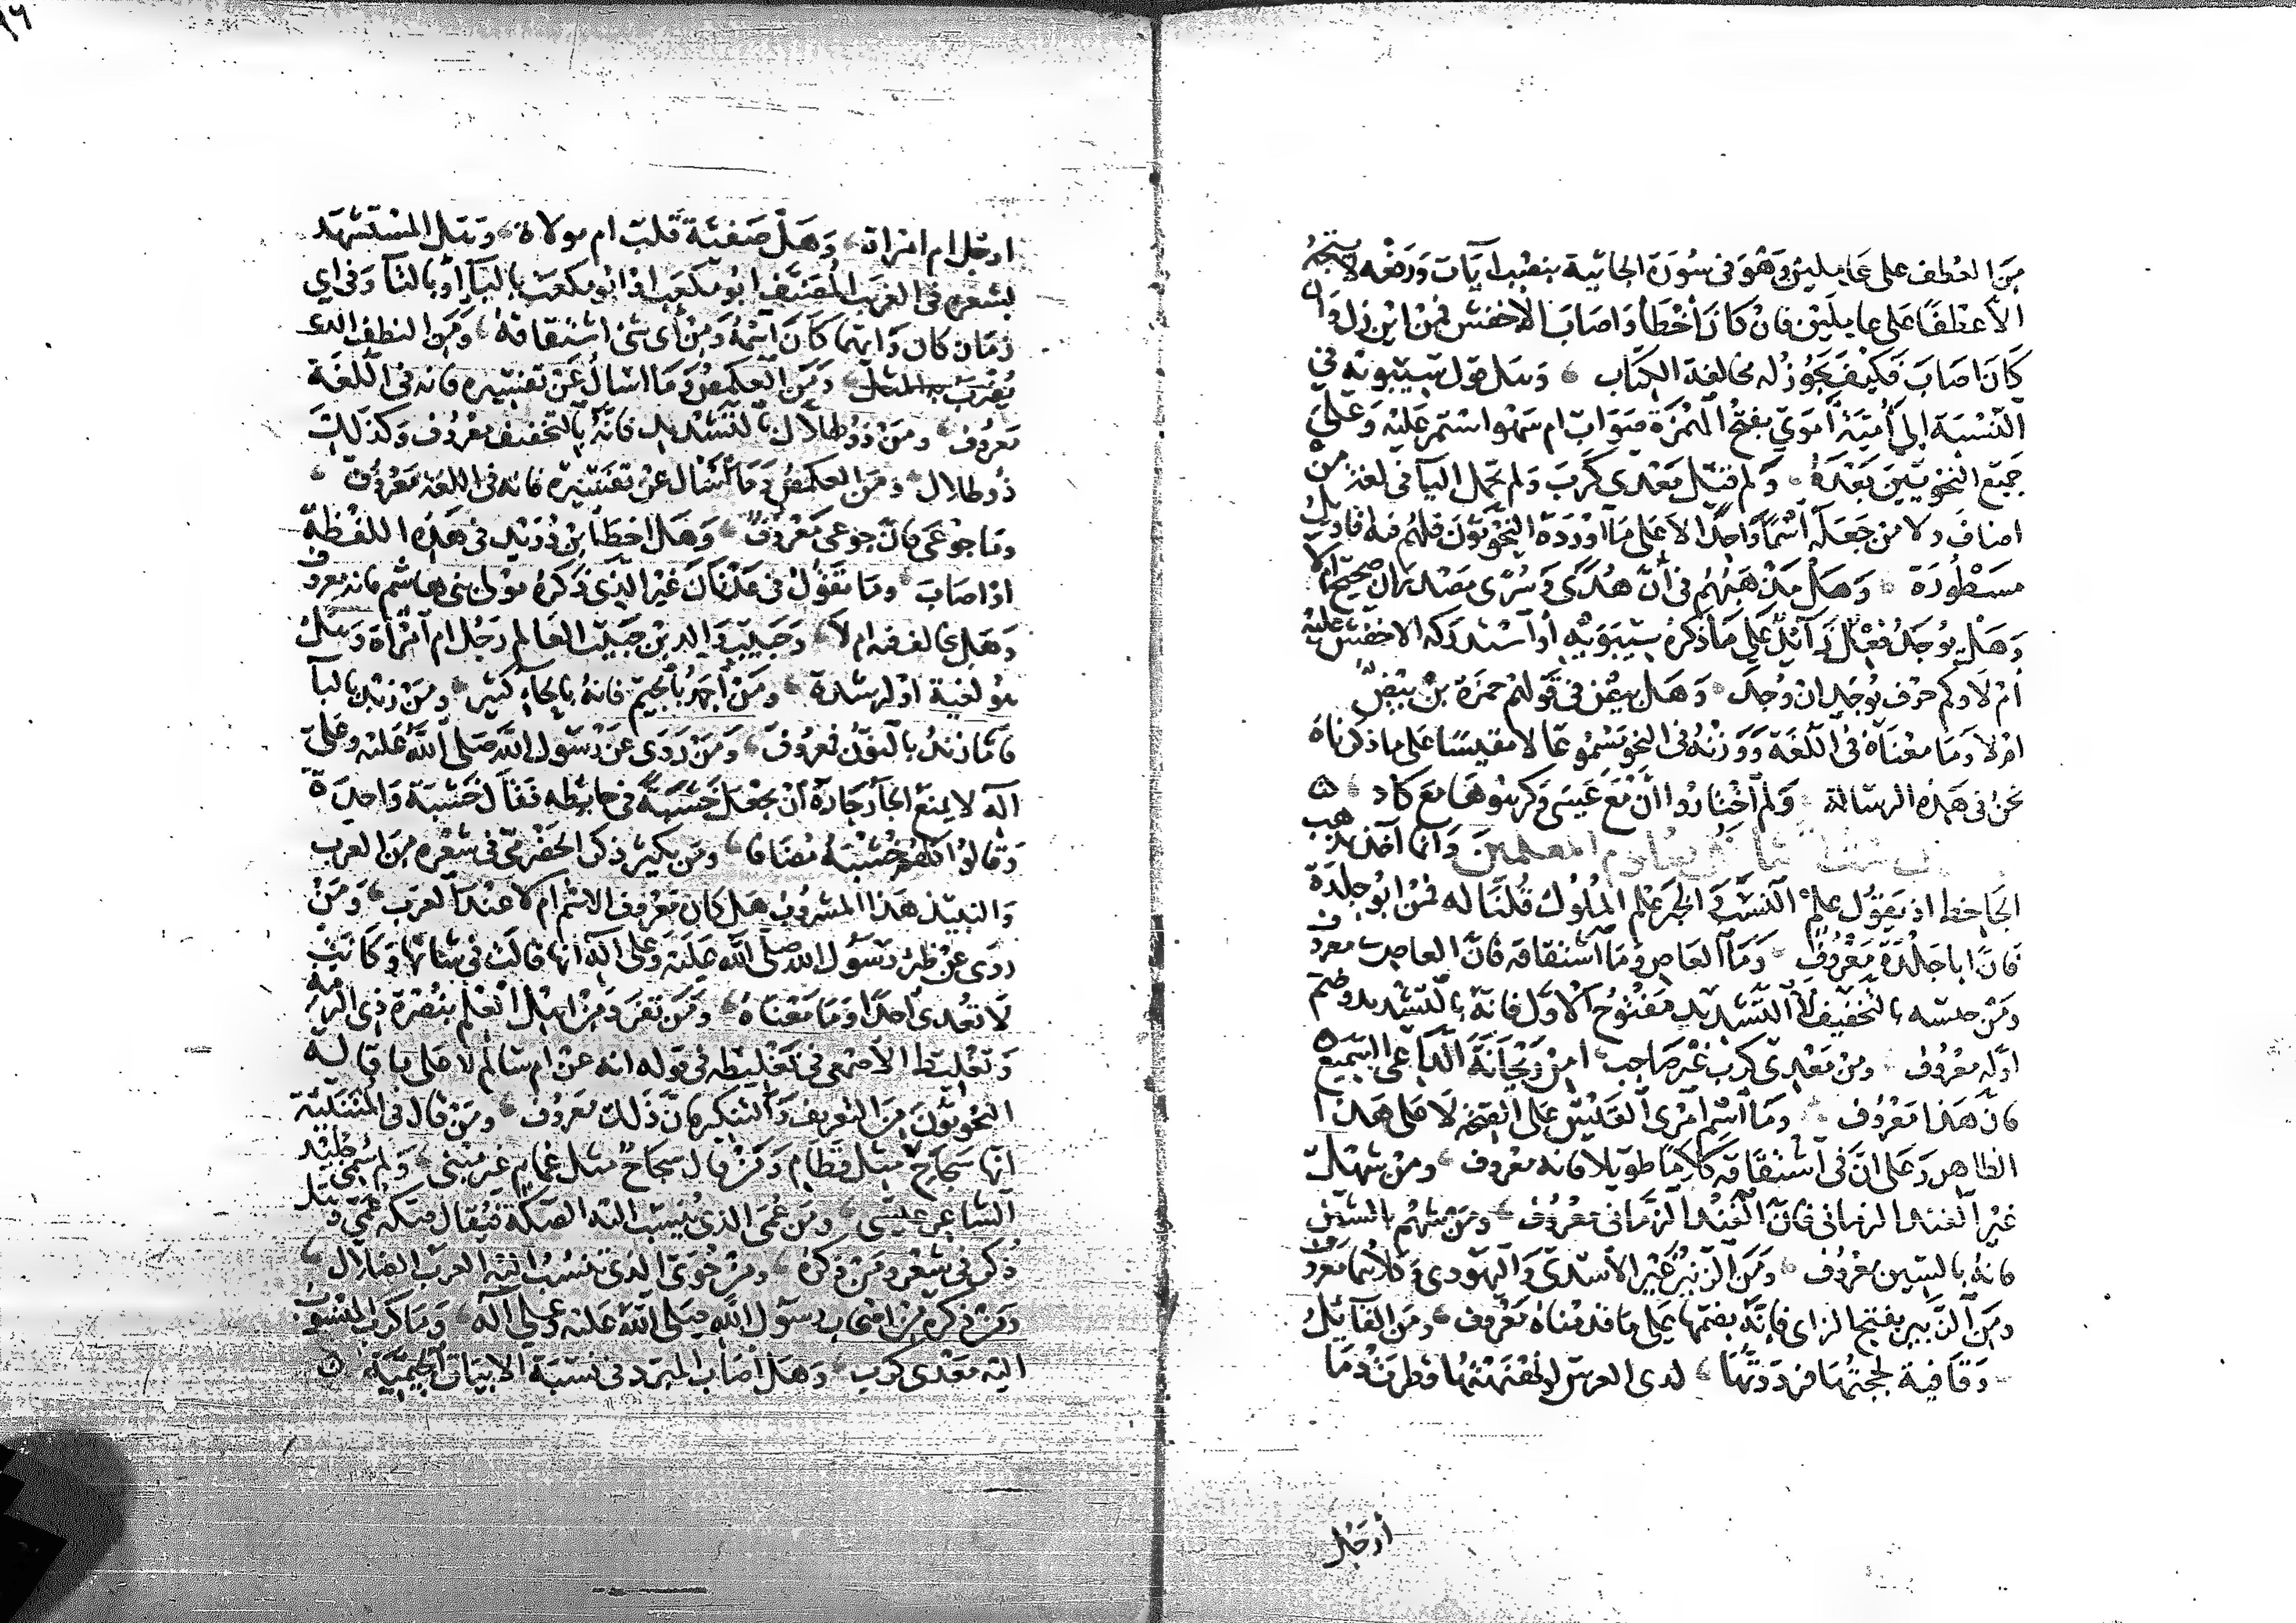 من العطف على عاملين وهو في سورة الجاثية بنصب ايات ورفعه لا يتجه
الا عطفا على عاملين فان كان أخطأ واصاب الاخفش فمن اين زل وان
كان اصاب فكيف يجوز له مخالفة الكتاب وهل قول سيبويه في
النسبة إلى أمية أموي بفتح الهمزة صواب ام سهو استمر عليه وعلى
جميع النحويين بعده ولم قيل معدي كرب ولم تحمل اليا في لغة من
اضاف ولا من جعله اسما واحدا الا على ما اورده النحويون فلهم فيه اقاويل
مسطورة وهل مذهبهم في أن هدى وسرى مصدران صحيح ام لا
وهل يوجد فعل زائد على ما ذكره سيبويه أو استدركه الاخفش عليه
ام لا وكم حرف يوجد ان وجد وهل يهمز في قولهم حمزة بن بيض
ام لا وما معناه في اللغة ووزنه في النحو مسموعا لا مقيسا على ما ذكرناه
نحن في هذه الرسالة ولم اختاروا ان مع عسى وكرهوها مع كاد
المعلمين وانما اخذ
الجاحظ اذ يقول علم النسب والخبر علم الملوك قلنا له فمن ابو جلدة
فان ابا جلدة معروف وما العاص وما اشتقاقه فان العاصي معروف
ومن بالتخفيف لا التشديد مفتوح الاول فانه بالتشديد وضم
اوله معروف ومن معدي كرب غير صاحب امن ريحانة الداعي السميع
فان هذا معروف وما اسم امرئ القيس على الصحة لا على هذا
الظاهر وعلى ان في اشتقاقه كلاما طويلا فانه معروف ومن شهل
غير الفند الزماني فان الفند الزماني معروف ومن شهم بالشين
فانه بالسين معروف ومن الزبير غير الاسدي واليهودي وكلاهما معروف
ومن الزبير بفتح الزاي فانه بضمها على ما قدمناه معروف ومن القائل
وقافية لججتها فرددتها لدى العرش لو نهنهتها قطرت دما
أرجل
ارجل ام امراة وهل صفية قلت ام مولاة وهل المستشهد
بشعره في الغريب المصنف ابو مكعب او ابو مكعت باليا أو بالتا وفي اي
زمان كان وايهما كان اسمه ومن أي شي اشتقاقه ومن النطف الذي
يضرب به المثل ومن العكمص وما اسال عن تفسيره فانه في اللغة
معروف ومن ذو طلال بالتشديد فانه بالتخفيف معروف وكذلك
ذو طلال ومن العكمص وما اسال عن تفسيره فانه في اللغة معروف
وما جوعى فان جوعى معروف وهل اخطا ابن دريد في هذه اللفظة
او اصاب وما تقول في عدنان غير الذي ذكره مولى بني هاشم فانه معروف
وهل خالف فيه ام لا وحبيب والد بن حبيب العالم رجل ام أمرأة وهل
هو لغية او لرشدة ومن أجمد بالجيم فانه بالحاء كثير ومن زبد باليا
فاما زند بالنون فمعروف ومن روى عن رسول الله صلى الله عليه وعلى
اله لا يمنع الجار جاره أن يجعل خشبة في حايطه فقال خشبة واحدة
وقالوا كلهم خشبه مضافا ومن يكير ذكر الحضرمي في شعره من العرب
والنبيذ هذا المشروب هل كان معروف الاسم ام لا عند العرب ومن
روى عن ظئر رسول الله صلى الله عليه وعلى اله انها قالت في شاتها وكانت
لا تغدى احدا وما معناه ومن تفرد من اهل العلم بنصرة ذي الرمة
وتغليط الاصمعي في تغليطه في قوله ايه عن ام سالم لا على ما قاله
النحويون من التعريف والتنكير فان ذلك معروف ومن قال في المتنبئة
انها سجاح مثل قطام ومن قال سجاح مثل غمام غير مبني ولم سمي جليد
الشاعر عليسى ومن عمي الذي ينسب اليه الصكة فيقال صكة عمي وهل
ذكر في شعر ومن ذكره ومن خوى الذي تنسب اليه العرب الضلال
ومن ذكره من اصحاب رسول الله صلى الله عليه وعلى اله وما كرب المنسوب
اليه معدي كرب وهل اصاب المبرد في نسبة الابيات الجيمية